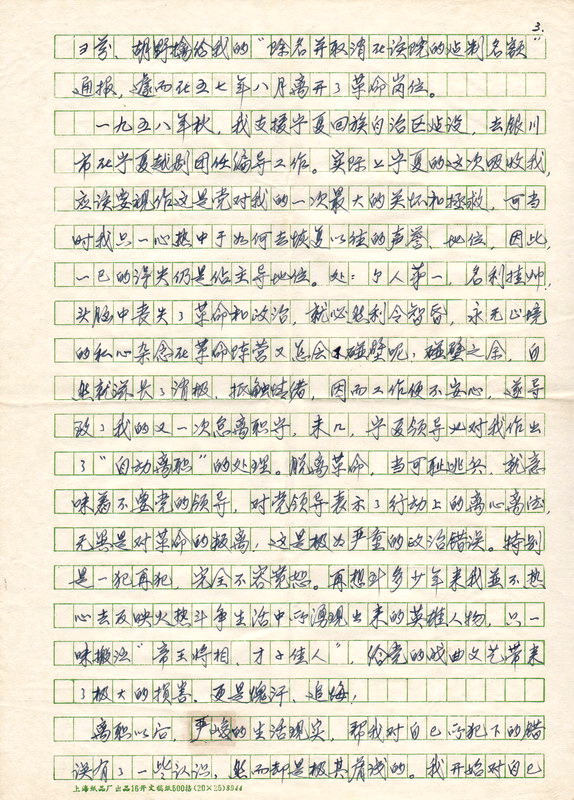 3.
另算，胡野擒给我的“除名并取消在该院的定制名额”
通报，遂而在五七年八月离开了革命岗位。
一九五八年秋，我支援宁夏回族自治区建设，去银川
市在宁夏越剧团任编导工作。实际上宁夏的这次吸收我，
应该要视作这是党对我的一次最大的关怀和拯救，可当
时我只一心热中于如何去恢复以往的声誉、地位，因此，
一己的得失仍是佔主导地位。处处个人第一，名利挂帅，
头脑中丧失了革命和政治，就必然利令智昏，永无止境
的私心杂念在革命阵营又怎会不碰壁呢；碰壁之余，自
然就滋长了消极、抵触情绪，因而工作便不安心，遂导
致了我的又一次怠离职守，未几，宁夏领导也对我作出
了“自动离职”的处理。脱离革命，当可耻逃兵，就意
味着不要党的领导，对党领导表示了行动上的离心离德，
无異是对革命的叛离，这是极为严重的政治错误。特别
是一犯再犯，完全不容宽恕。再想到多少年来我並不热
心去反映火热斗争生活中所湧现出来的英雄人物，只一
味搬演“帝王将相，才子佳人”，给党的戏曲文艺带来
了极大的损害，更是愧汗、追悔！
离职以后，严峻的生活现实，帮我对自己所犯下的错
误有了一些认识，然而却是极其肤浅的。我开始对自己
上海纸品厂出品16开文稿纸500格(20×25)8944